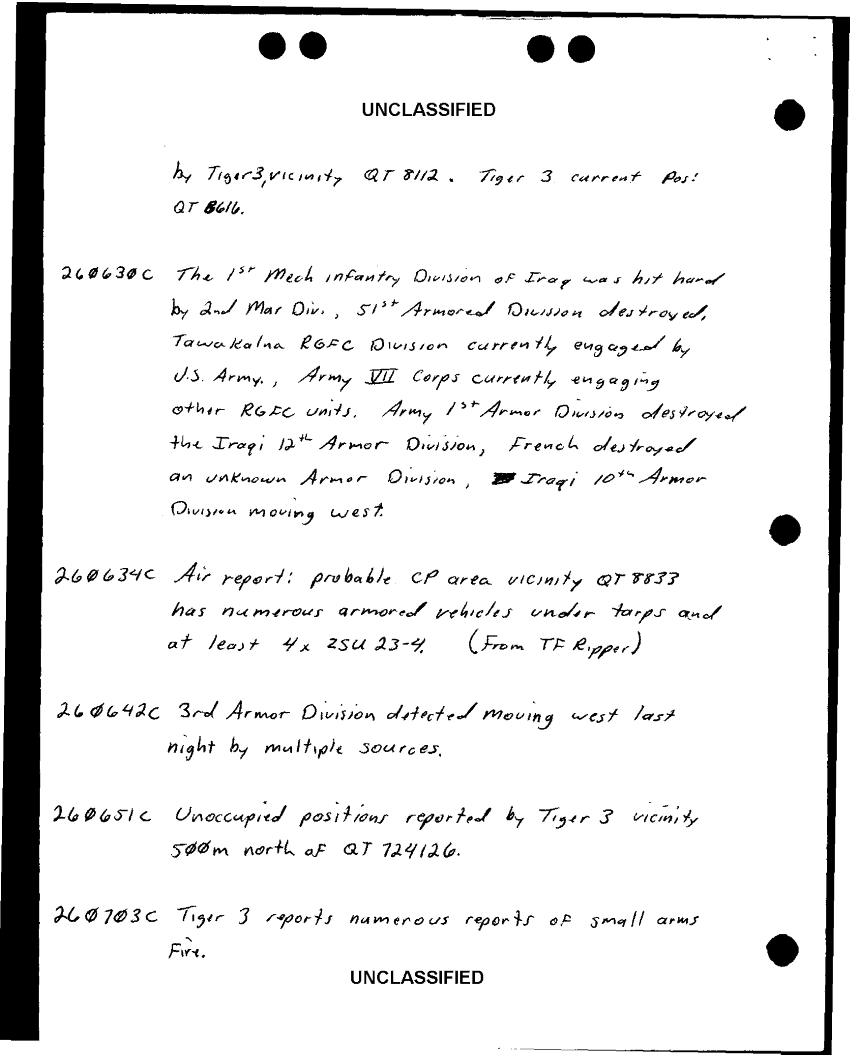 UNCLASSIFIED
by Tiger3, vicinity QT 8112. Tiger 3 current Pos:
QT 8616.
26Ø63ØC The 1st Mech infantry Division of Iraq was hit hard
by 2nd Mar Div., 51st Armored Division destroyed,
Tawakalna RGFC Division currently engaged by
U.S. Army., Army VII Corps currently engaging
other RGFC units. Army 1st Armor Division destroyed
the Iraqi 12th Armor Division, French destroyed
an unknown Armor Division, Iraqi 10th Armor
Division moving west.
26Ø634C Air report: probable CP area vicinity QT 8833
has numerous armored vehicles under tarps and
at least 4x ZSU 23-4. (From TF Ripper)
26Ø642C 3rd Armor Division detected moving west last
night by multiple sources.
26Ø651C Unoccupied positions reported by Tiger 3 vicinity
5ØØm north of QT 724126.
26Ø703C Tiger 3 reports numerous reports of small arms
Fire.
UNCLASSIFIED